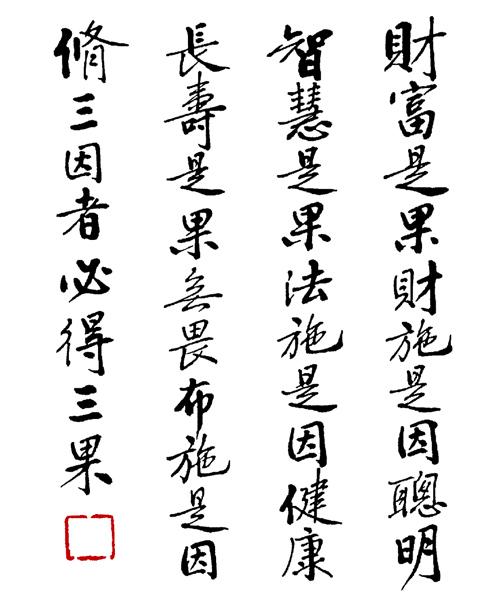 財富是果財施是因聰明
智慧是果法施是因健康
長壽是果無畏布施是因
脩三因者必得三果